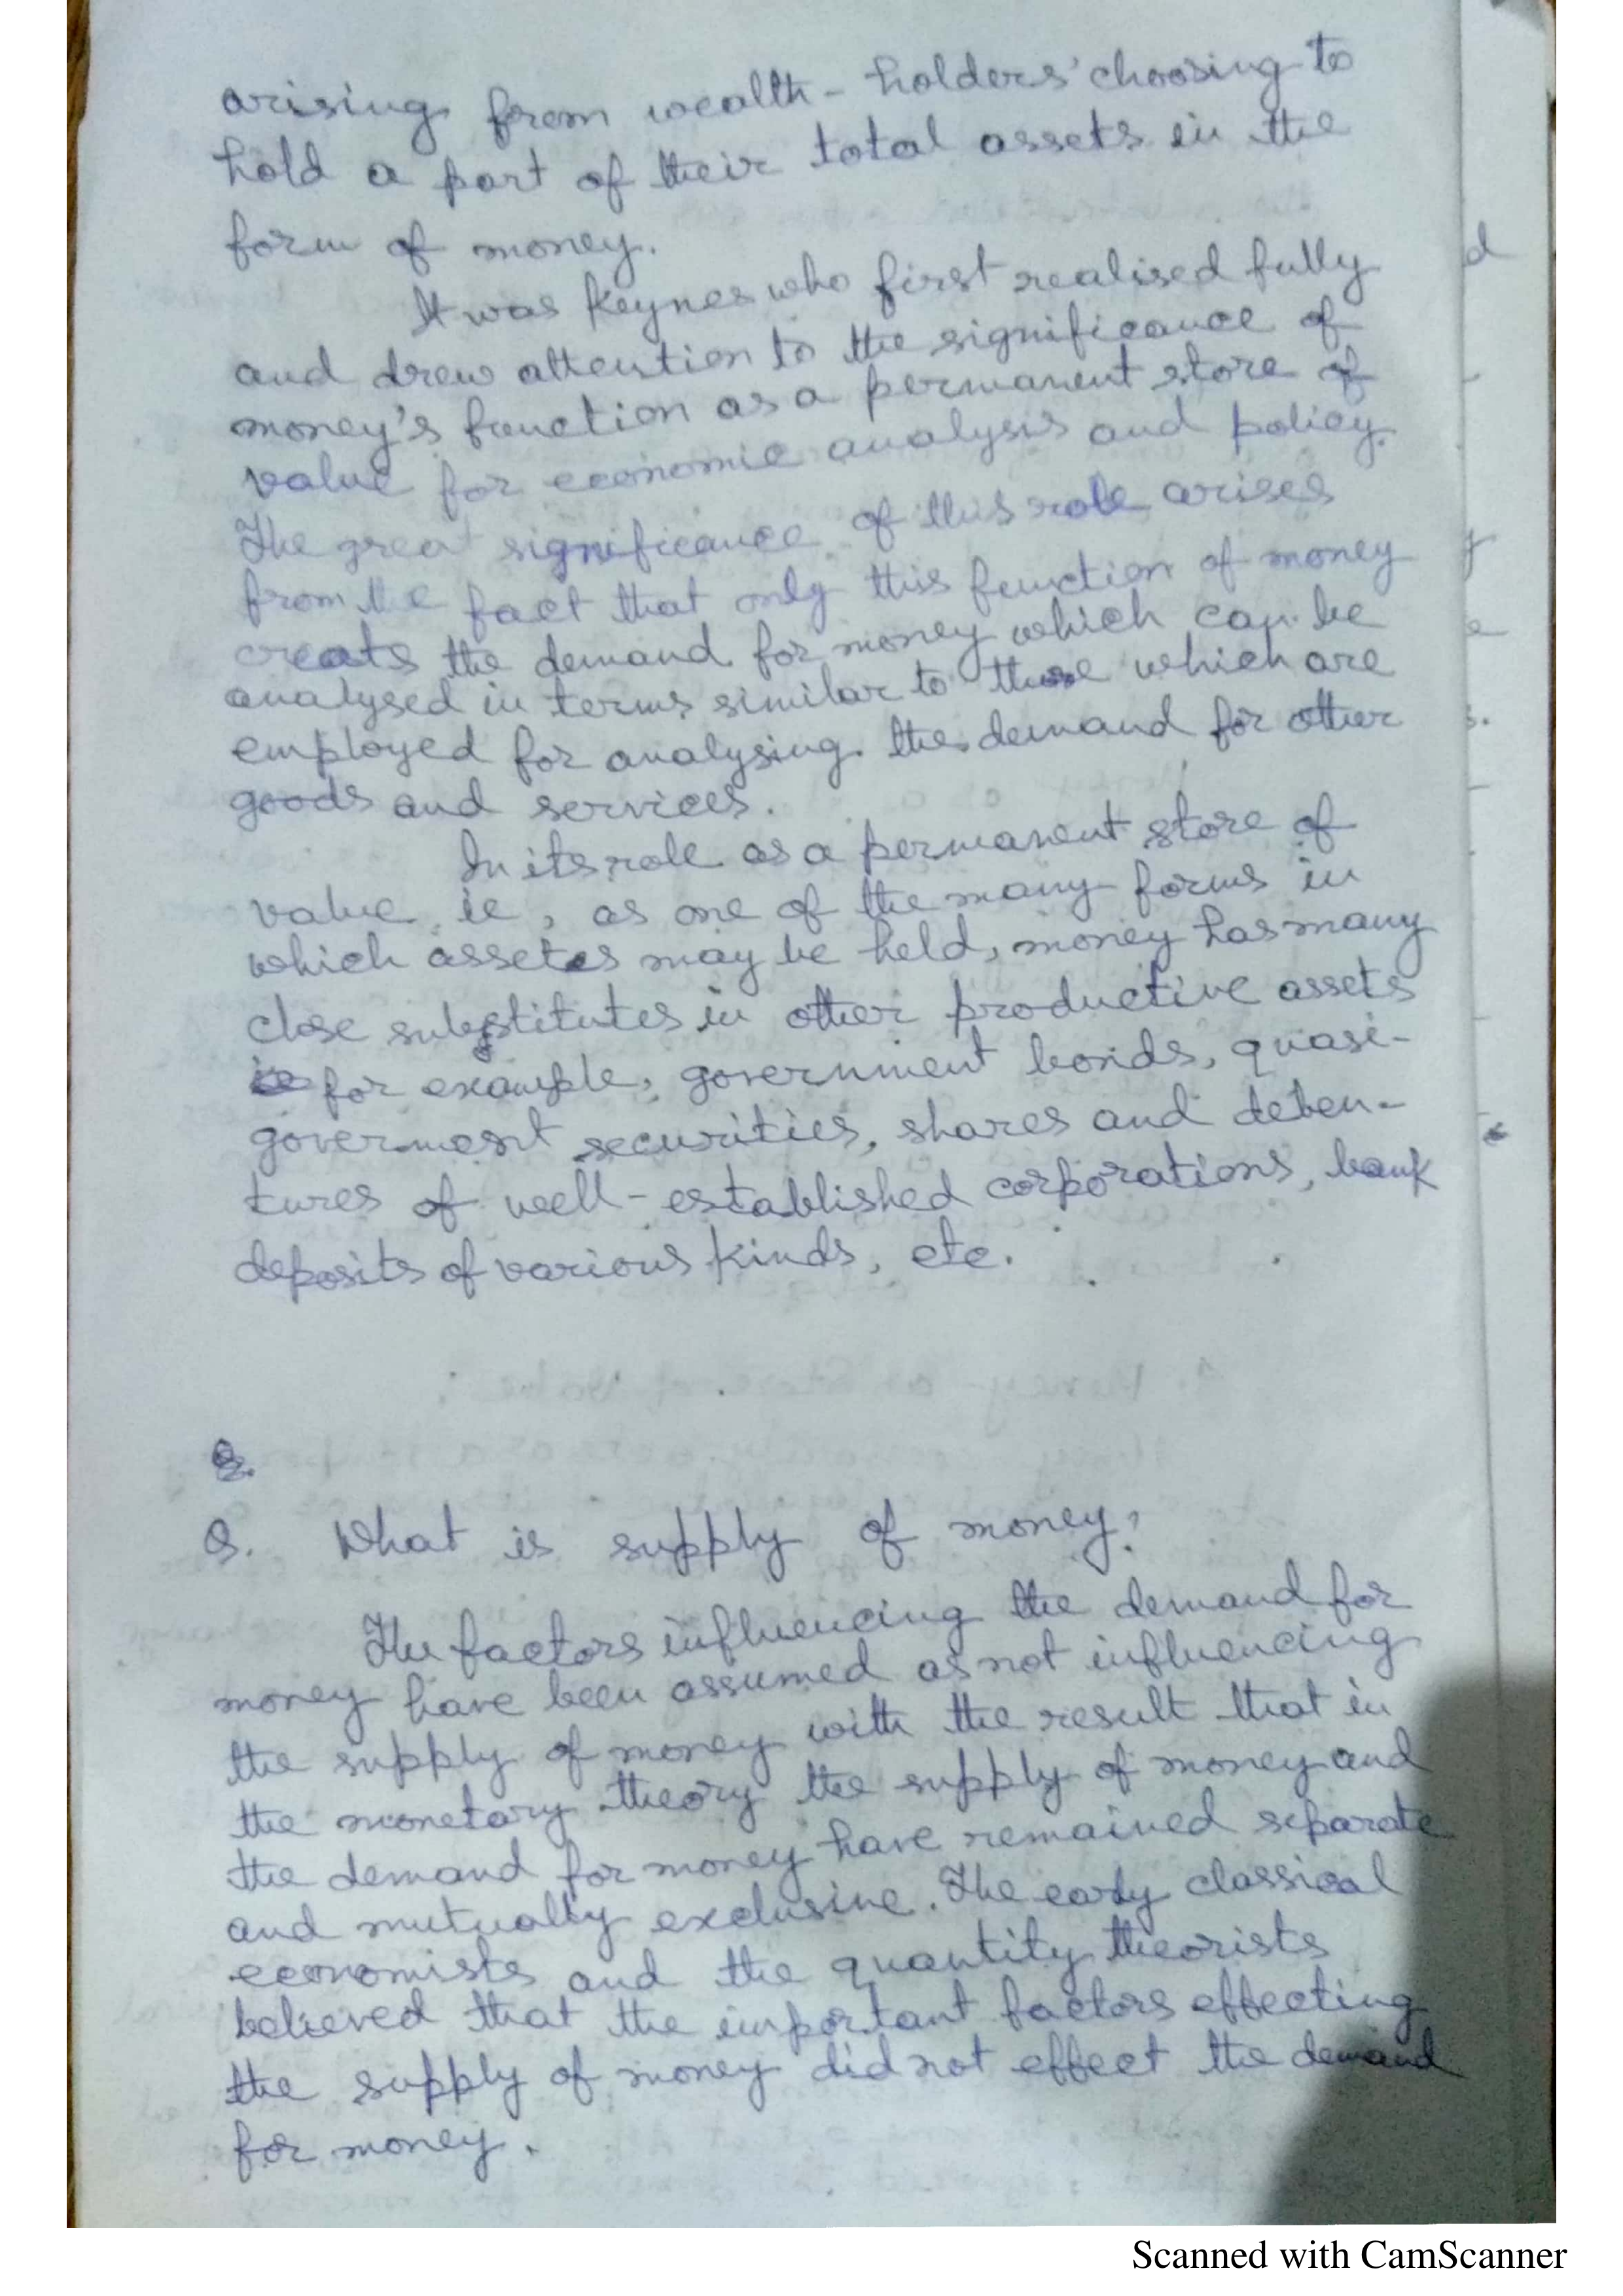 arising from wealth-holders' choosing to
hold a part of their total assets in the
form of money.
It was Keynes who first realised fully
and drew attention to the significance of
money's function as a permanent store of
value for economic analysis and policy.
The great significance of this role arises
from the fact that only this function of money
creats the demand for money which can be
analysed in terms similar to those which are
employed for analysing the demand for other
goods and services.
In its role as a permanent store of
value ie, as one of the many forms in
which assetes may be held, money has many
close substitutes in other productive assets
for example, government bonds, quasi-
goverment securities, shares and deben-
tures of well-established corporations, bank
deposits of various kinds, etc.
Q.
Q. What is supply of money?
The factors influencing the demand for
money have been assumed as not influencing
the supply of money with the result that in
the monetary theory the supply of money and
the demand for money have remained separate
and mutually exclusive. The early classical
economists and the quantity theorists
believed that the important factors effecting
the supply of money did not effect the demand
for money.
Scanned with CamScanner